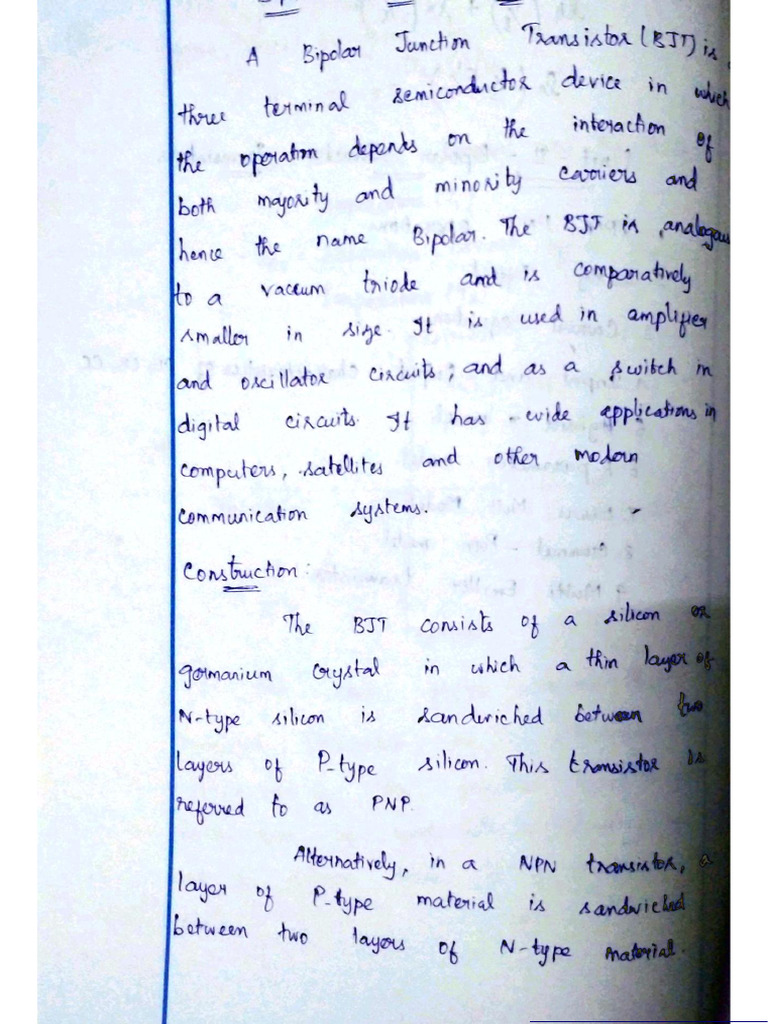 A Bipolar Junction Transistor (BJT) is
three terminal semiconductor device in which
the operation depends on the interaction of
both majority and minority carriers and
hence the name Bipolar. The BJT is analogous
to a vaccum triode and is comparatively
smaller in size. It is used in amplifier
and oscillator circuits, and as a switch in
digital circuits. It has wide applications in
computers, satellites and other modern
communication systems.
Construction:
The BJT consists of a silicon or
germanium crystal in which a thin layer of
N-type silicon is sandwiched between two
layers of P-type silicon. This transistor is
referred to as PNP.
Alternatively, in a NPN transistor, a
layer of P-type material is sandwiched
between two layers of N-type material.